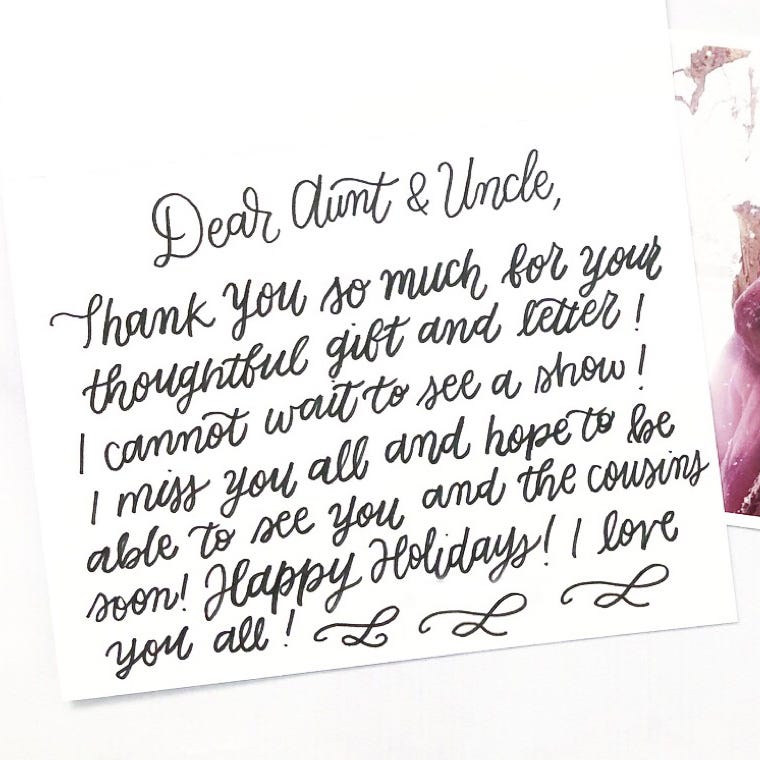 Dear Aunt & Uncle,
Thank you so much for your
thoughtful gift and letter!
I cannot wait to see a show!
I miss you all and hope to be
able to see you and the cousins
soon! Happy Holidays! I love
you all!